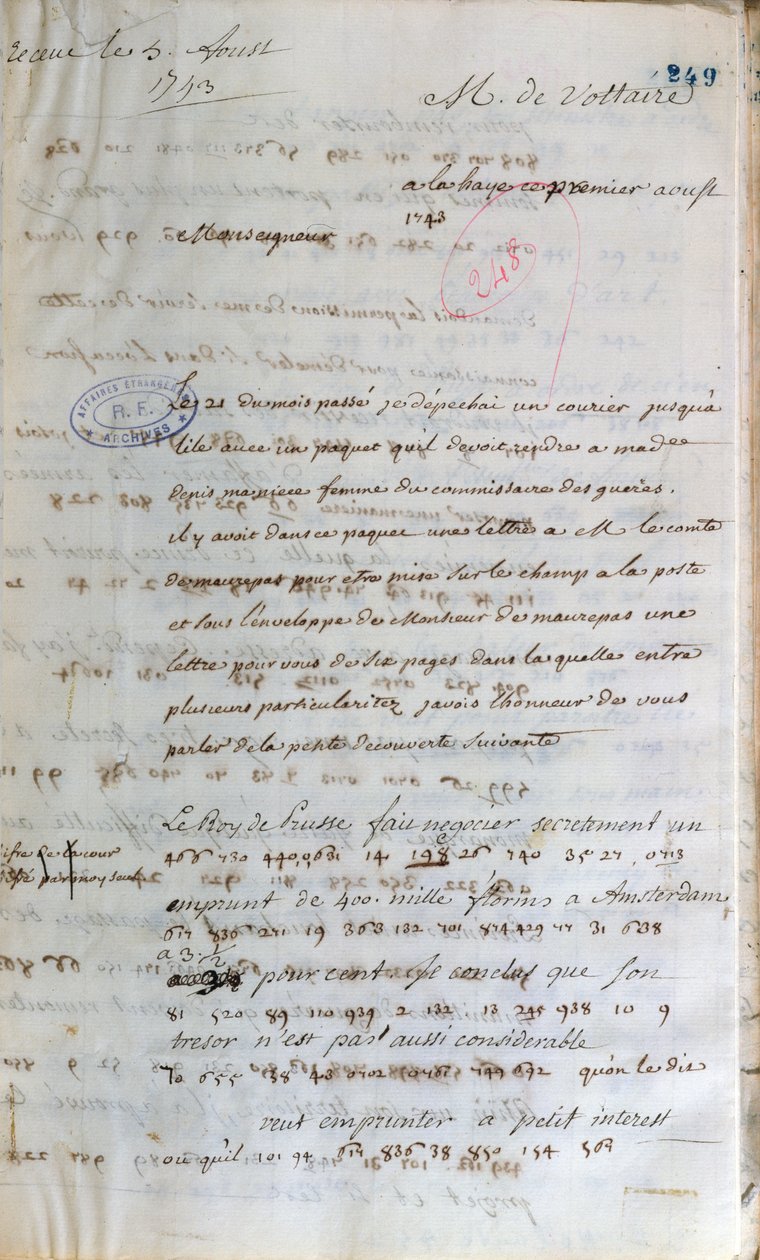 Receue le 5. Aoust
1743
249
M. de Voltaire
a la haye ce premier aoust
1743
Monseigneur
248
AFFAIRES ÉTRANGÈRES
R. F.
ARCHIVES
Le 21 du mois passé je dépechai un courier jusqu'a
lile avec un paquet quil devoit rendre a made
denis ma niece femme du commissaire des gueres.
il y avoit dans ce paquet une lettre a M le comte
de maurepas pour etre mise sur le champ a la poste
et sous l'enveloppe de Monsieur de maurepas une
lettre pour vous de six pages dans la quelle entre
plusieurs particularitez javois lhonneur de vous
parler de la petite decouverte suivante
Le Roy de Prusse fait negocier secretement un
de la cour
par moy seul
466 730 440,0631 14 198 26 740 35 27, 0713
emprunt de 400. mille florins a Amsterdam
617 836 271 19 363 132 701 874 429 77 31 638
a 3. 1/2
pour cent. Je conclus que son
81 520 89 110 939 2 132 13 245 938 10 9
tresor n'est pas aussi considerable
70 655 38 43 0702 0767 749 692 qu'on le dit
veut emprunter a petit interest
ou qu'il 101 94 617 836 38 850 154 562